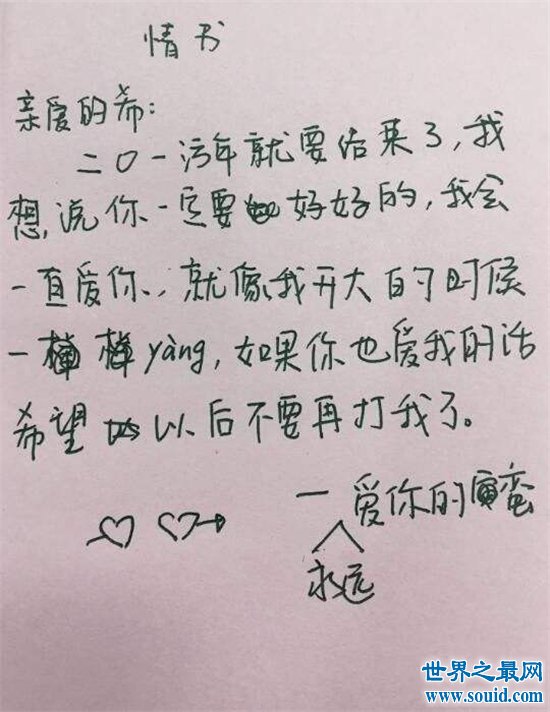 情书
亲爱的希:
二〇一污年就要结束了,我
想说你一定要好好的,我会
一直爱你,就像我开大的时候
一 yàng,如果你也爱我的话
希望以后不要再打我了。
一爱你的蛮
永远
世界之最网
www.souid.com